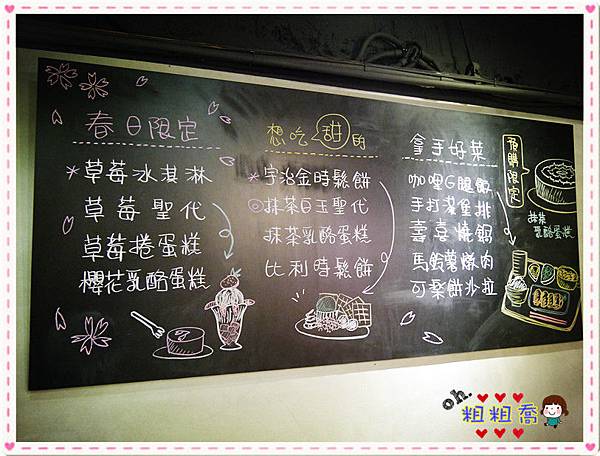 春日限定
*草莓冰淇淋
草莓聖代
草莓捲蛋糕
櫻花乳酪蛋糕
想吃甜的
*宇治金時鬆餅
◎抹茶白玉聖代
抹茶乳酪蛋糕
比利時鬆餅
拿手好菜
咖哩G腿飯
手打漢堡排
壽喜燒鍋
馬鈴薯燉肉
可樂餅沙拉
預購限定
抹茶
乳酪蛋糕
oh.
粗粗喬